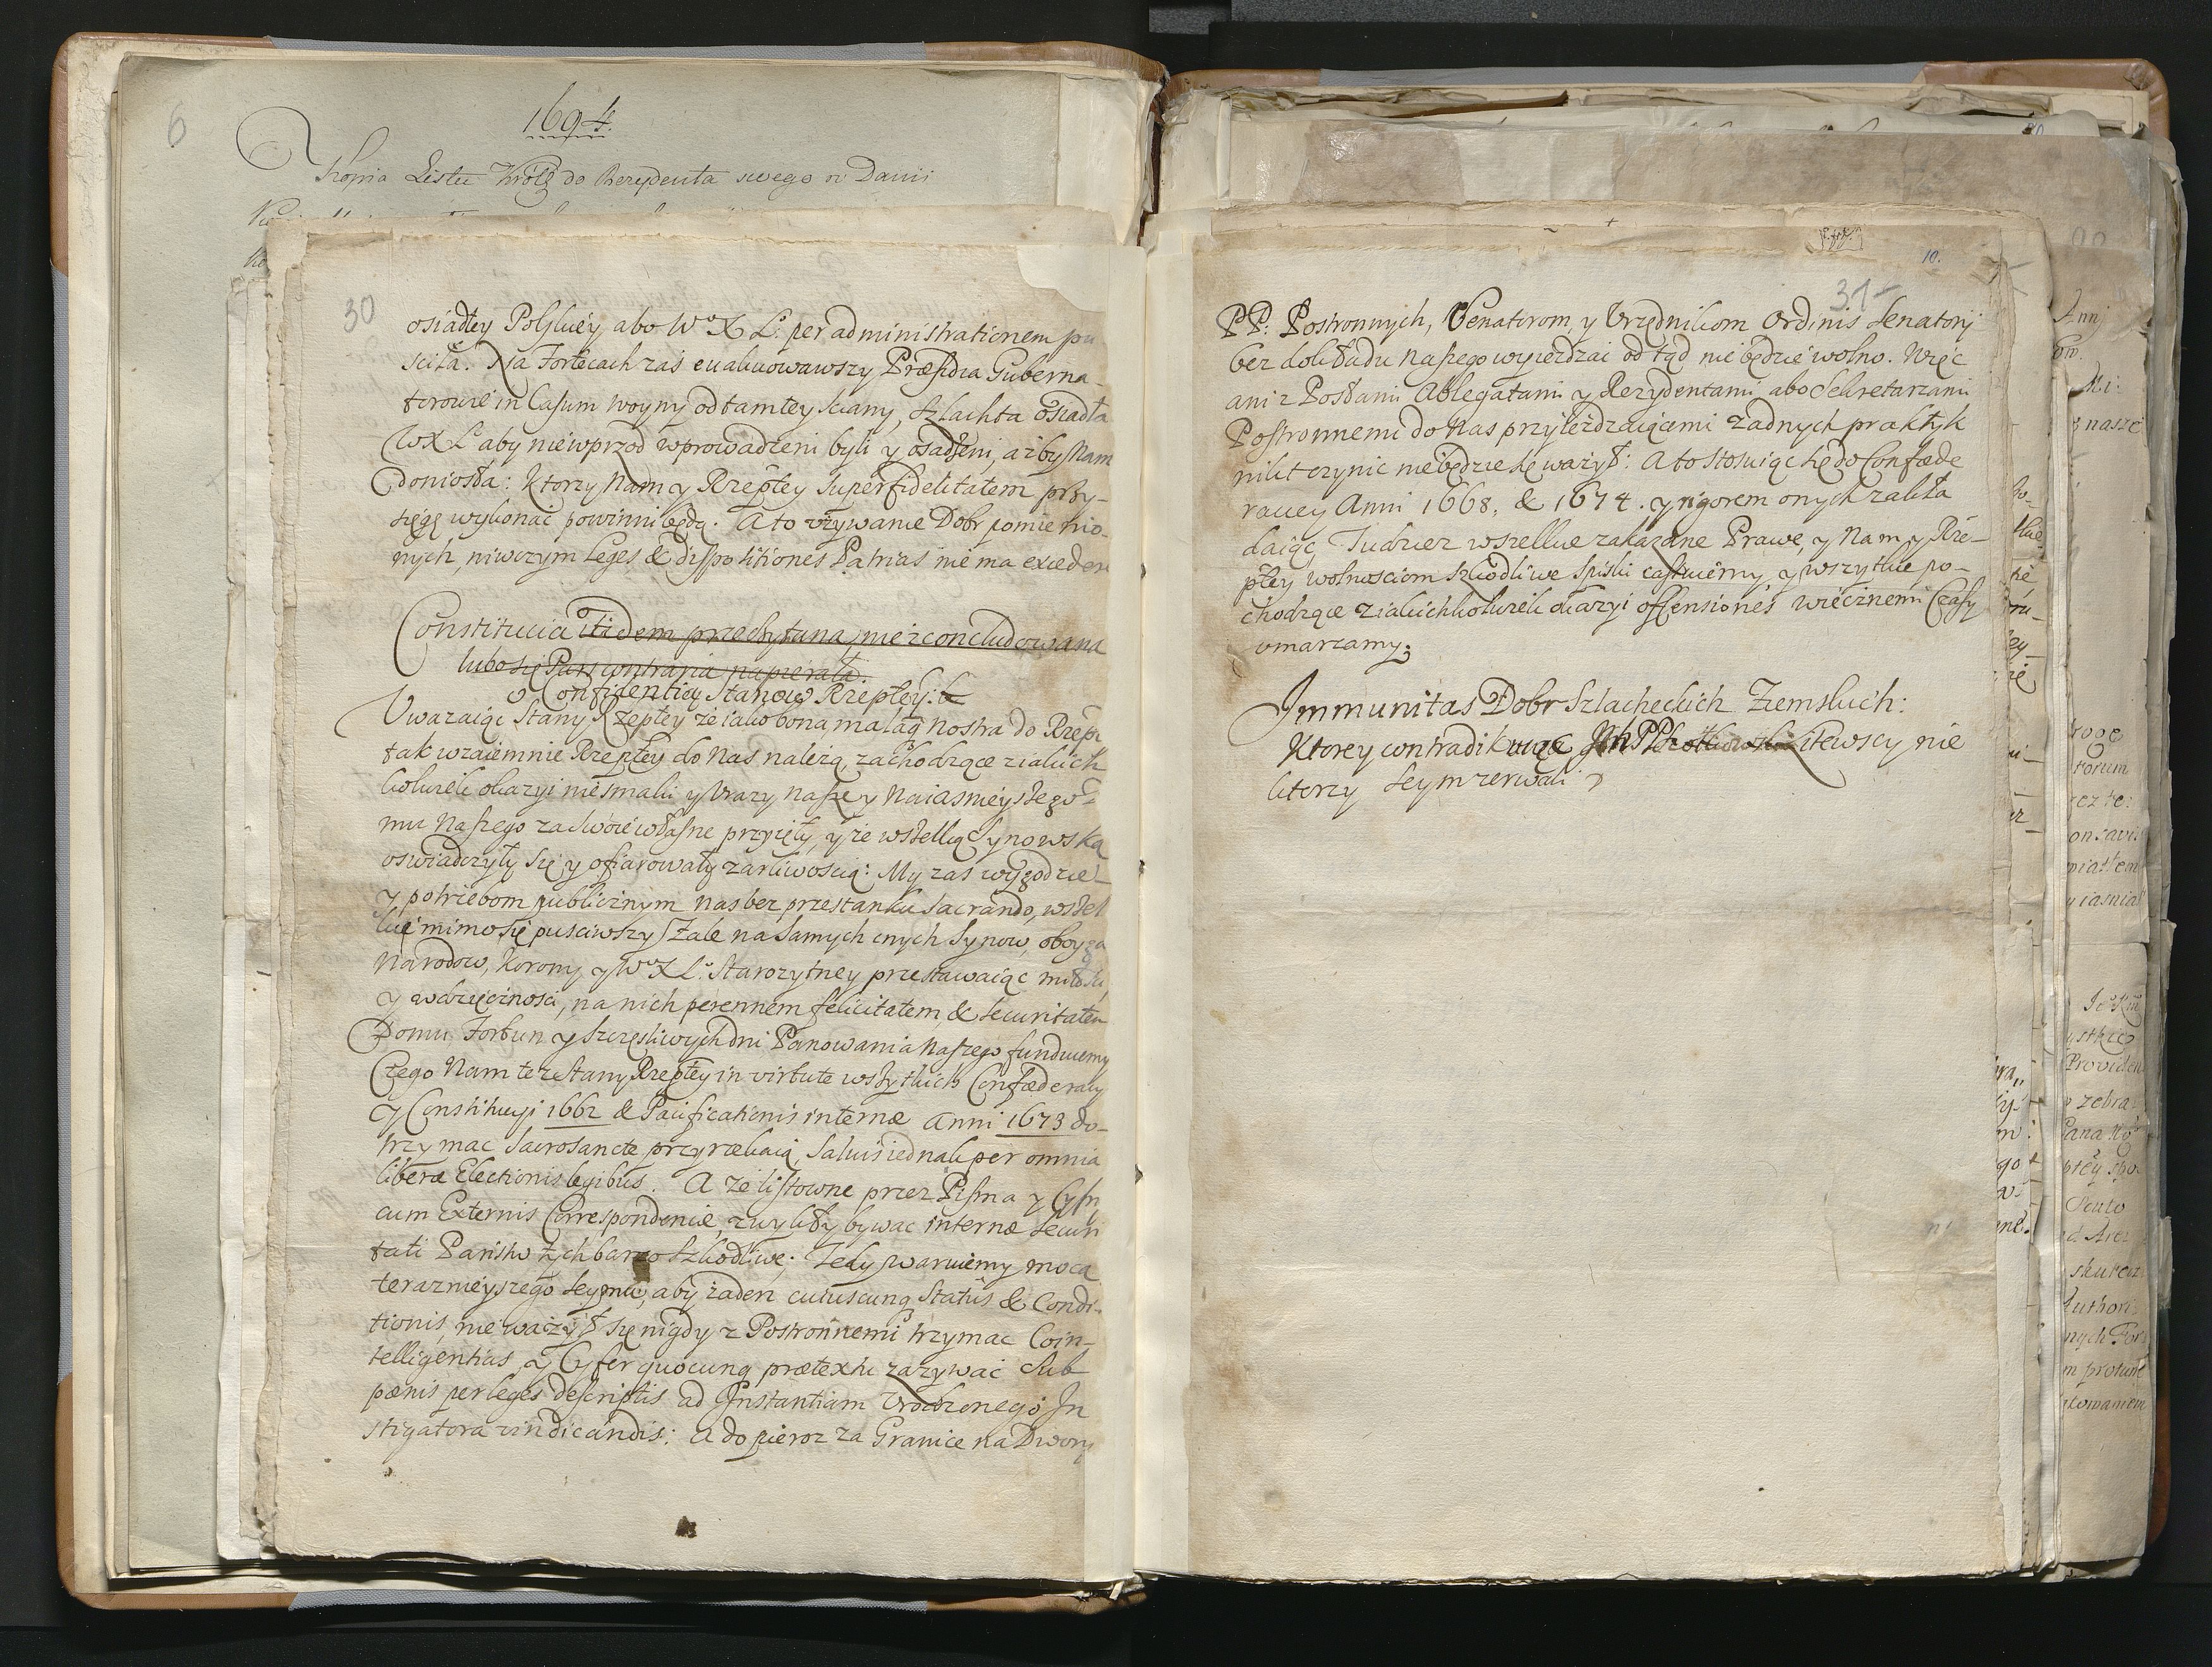 6
1694.
Kopia Listu Króla do Rezydenta swego w Danii
30
osiadłey Polskiey abo WoXLo per administrationem pu
sciła. Na Fortecach zaś eualuowawszy Præsidia Guberna-
torowie in Casum woyny od tamtey sciany, Szlachta osiadła
WXLo aby niewprzod wprowadzeni byli y osadzeni, aż by Nam
doniosła: Ktorzy Nam y Rzeptey super fidelitatem przy-
sięgę wykonać powinni będą. A to vżywanie Dobr pomienio-
nych, niwczym Leges & dispositiones Patrias nie ma exceder
Constitucia itidem przeczytana, nie zconcludowana
lubo się Pars contraria napierała.
o Confidentią Stanow Rzeptey:
Uwazaiąc Stany Rzeptey że iako bona mala nostra do Rzept
tak wzaiemnie Rzeptey do Nas należą, zachodzące z iakich
kolwiek okazyi niesmaki y Vrazy Naszey Naiasnieyszego
mu Naszego za swoie własne przyięły, y że wszelką Synowską
oswiadczyły się y ofiarowały zarliwoscią: My zas wygodzie
y potrzebom publicznym nas bez przestanku sacrando, wszel
kie mimo się pusciwszy Żale na samych cnych Synow, oboyga
Narodow, Korony y WoXLo Starozytney przestawaiąc miłosci
y wdzięcznosci, na nich perennem felicitatem & securitatem
Domu, Fortun y szczęsliwych dni Panowania Naszego funduiemy
Czego Nam też Stany Rzeptey in virtute wszytkich Confæderacy
y Constitucyi 1662 & Pacificationis internæ Anni 1673 do-
trzymac Sacrosancte przyrzekaią, Salvis iednak per omnia
liberæ Electionis legibus. A że listowne przez Pisma y Cyfr
cum Externis Correspondencie zwykły bywac internæ Securi
tati Państw tych barzo szkodliwe; Tedy waruiemy mocą
teraznieyszego Seymu, aby żaden cuiuscunq Status & Condi-
tionis, nie ważył się nigdy z Postronnemi trzymac Coin-
telligentias, y Cyfer quocunq prætextu zażywać Sub
pœnis per leges descriptis ad Instantiam Vrodzonego In
stigatora vindicandis: A dopieroz za Granice na Dwory
10.
31
PP: Postronnych, Senatorom, y Vrzędnikom Ordinis Senatorij
bez dokładu Naszego wyiezdzać od tąd nie będzie wolno. Więc
ani z Posłami Ablegatami y Rezydentami abo Sekretarzami
Postronnemi do Nas przyieżdzaiącemi żadnych praktyk
nikt czynic nie będzie się ważył: A to stosuiąc się do Confæde
racyey Anni 1668, & 1674. y rigorem onych zakła
daiąc, Tudziez wszelkie zakazane Prawe, y Nam y Rze-
ptey wolnosciom szkodliwe Spiski cassuiemy, y wszytkie po-
chodzące z iakichkolwiek okazyi offensiones wiecznemi Czasy
vmarzamy;
Immunitas Dobr Szlacheckich Ziemskich:
Ktorey contradikuiąc PP nie
ktorzy Seym zerwali